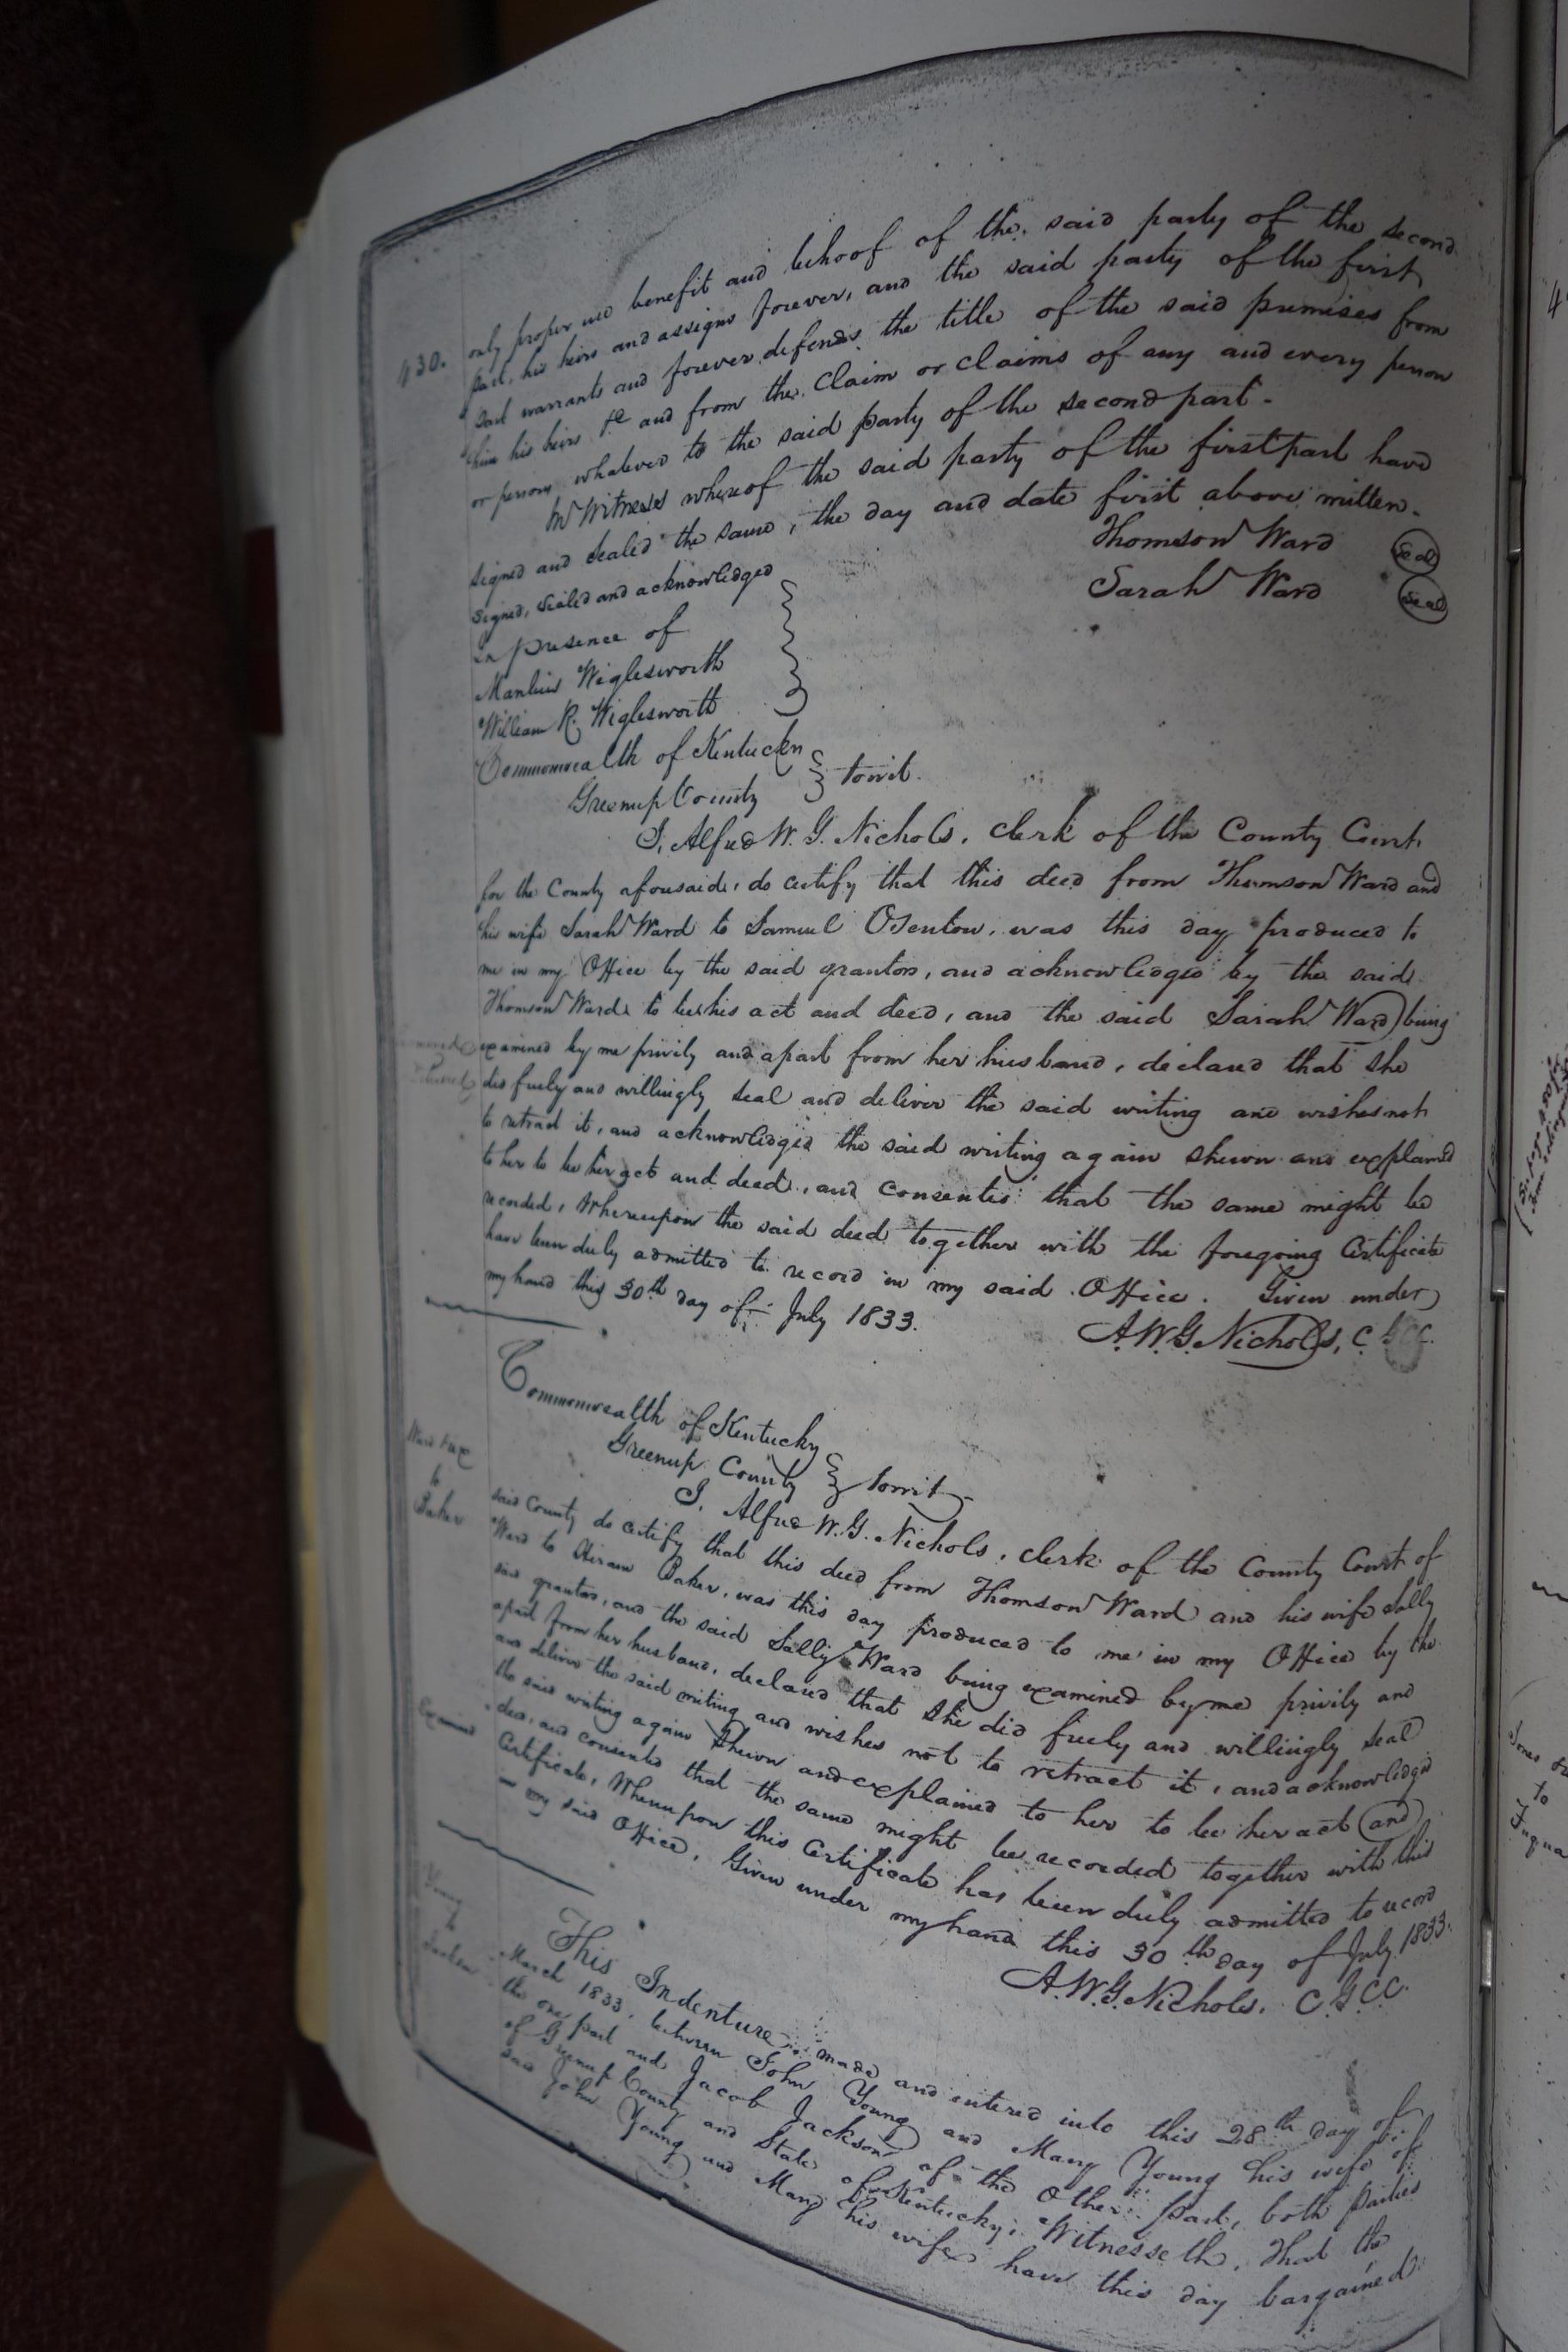 430.
only proper use benefit and behoof of the said party of the second
part, his heirs and assigns forever, and the said party of the first
part warrants and forever defends the title of the said premises from
him his heirs &c and from the claim or claims of any and every person
or persons whatever to the said party of the second part.
In Witness whereof the said party of the first part have
signed and sealed the same, the day and date first above written.
Thomson Ward Seal
Sarah Ward Seal
Signed, sealed and acknowledged
in presence of
Manlius Wiglesworth
William R. Wiglesworth
Commonwealth of Kentucky
Greenup County } towit.
I, Alfred W. G. Nichols, clerk of the County Court
for the County aforesaid, do certify that this deed from Thomson Ward and
his wife Sarah Ward to Samuel Osenton, was this day produced to
me in my Office by the said grantors, and acknowledged by the said
Thomson Ward to be his act and deed, and the said Sarah Ward being
examined by me privily and apart from her husband, declared that she
did freely and willingly seal and deliver the said writing and wishes not
to retract it, and acknowledged the said writing again shewn and explained
to her to be her act and deed, and consented that the same might be
recorded, Whereupon the said deed together with the foregoing Certificate
have been duly admitted to record in my said Office. Given under
my hand this 30th day of July 1833.
A.W.G. Nichols, C.G.C.C.
Ward &ux
to
Baker
Commonwealth of Kentucky
Greenup County } towit
I, Alfred W.G. Nichols, clerk of the County Court of
said County do certify that this deed from Thomson Ward and his wife Sally
Ward to Hiram Baker, was this day produced to me in my Office by the
said grantors, and the said Sally Ward being examined by me privily and
apart from her husband, declared that she did freely and willingly seal
and deliver the said writing and wishes not to retract it, and acknowledged
the said writing again shewn and explained to her to be her act and
deed, and consented that the same might be recorded together with this
Certificate, Whereupon this Certificate has been duly admitted to record
in my said Office, Given under my hand this 30th day of July 1833.
A.W.G. Nichols, C.G.C.C.
Examined
Young
to
Jackson
This Indenture made and entered into this 28th day of
March 1833, between John Young and Mary Young his wife of
the one part and Jacob Jackson of the Other part, both parties
of Greenup County and State of Kentucky; Witnesseth, That the
said John Young and Mary his wife have this day bargained
4
Jones
to
Fuqua